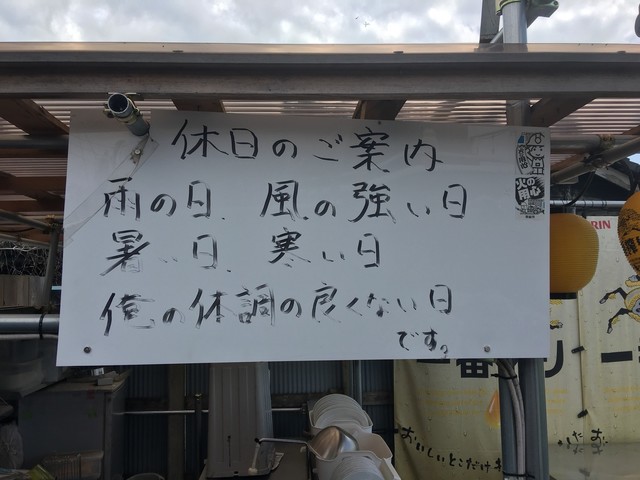 休日のご案内
雨の日、風の強い日
暑い日、寒い日
俺の体調の良くない日
です。
火の用心
KIRIN
一番搾り
おいしいとこだけ